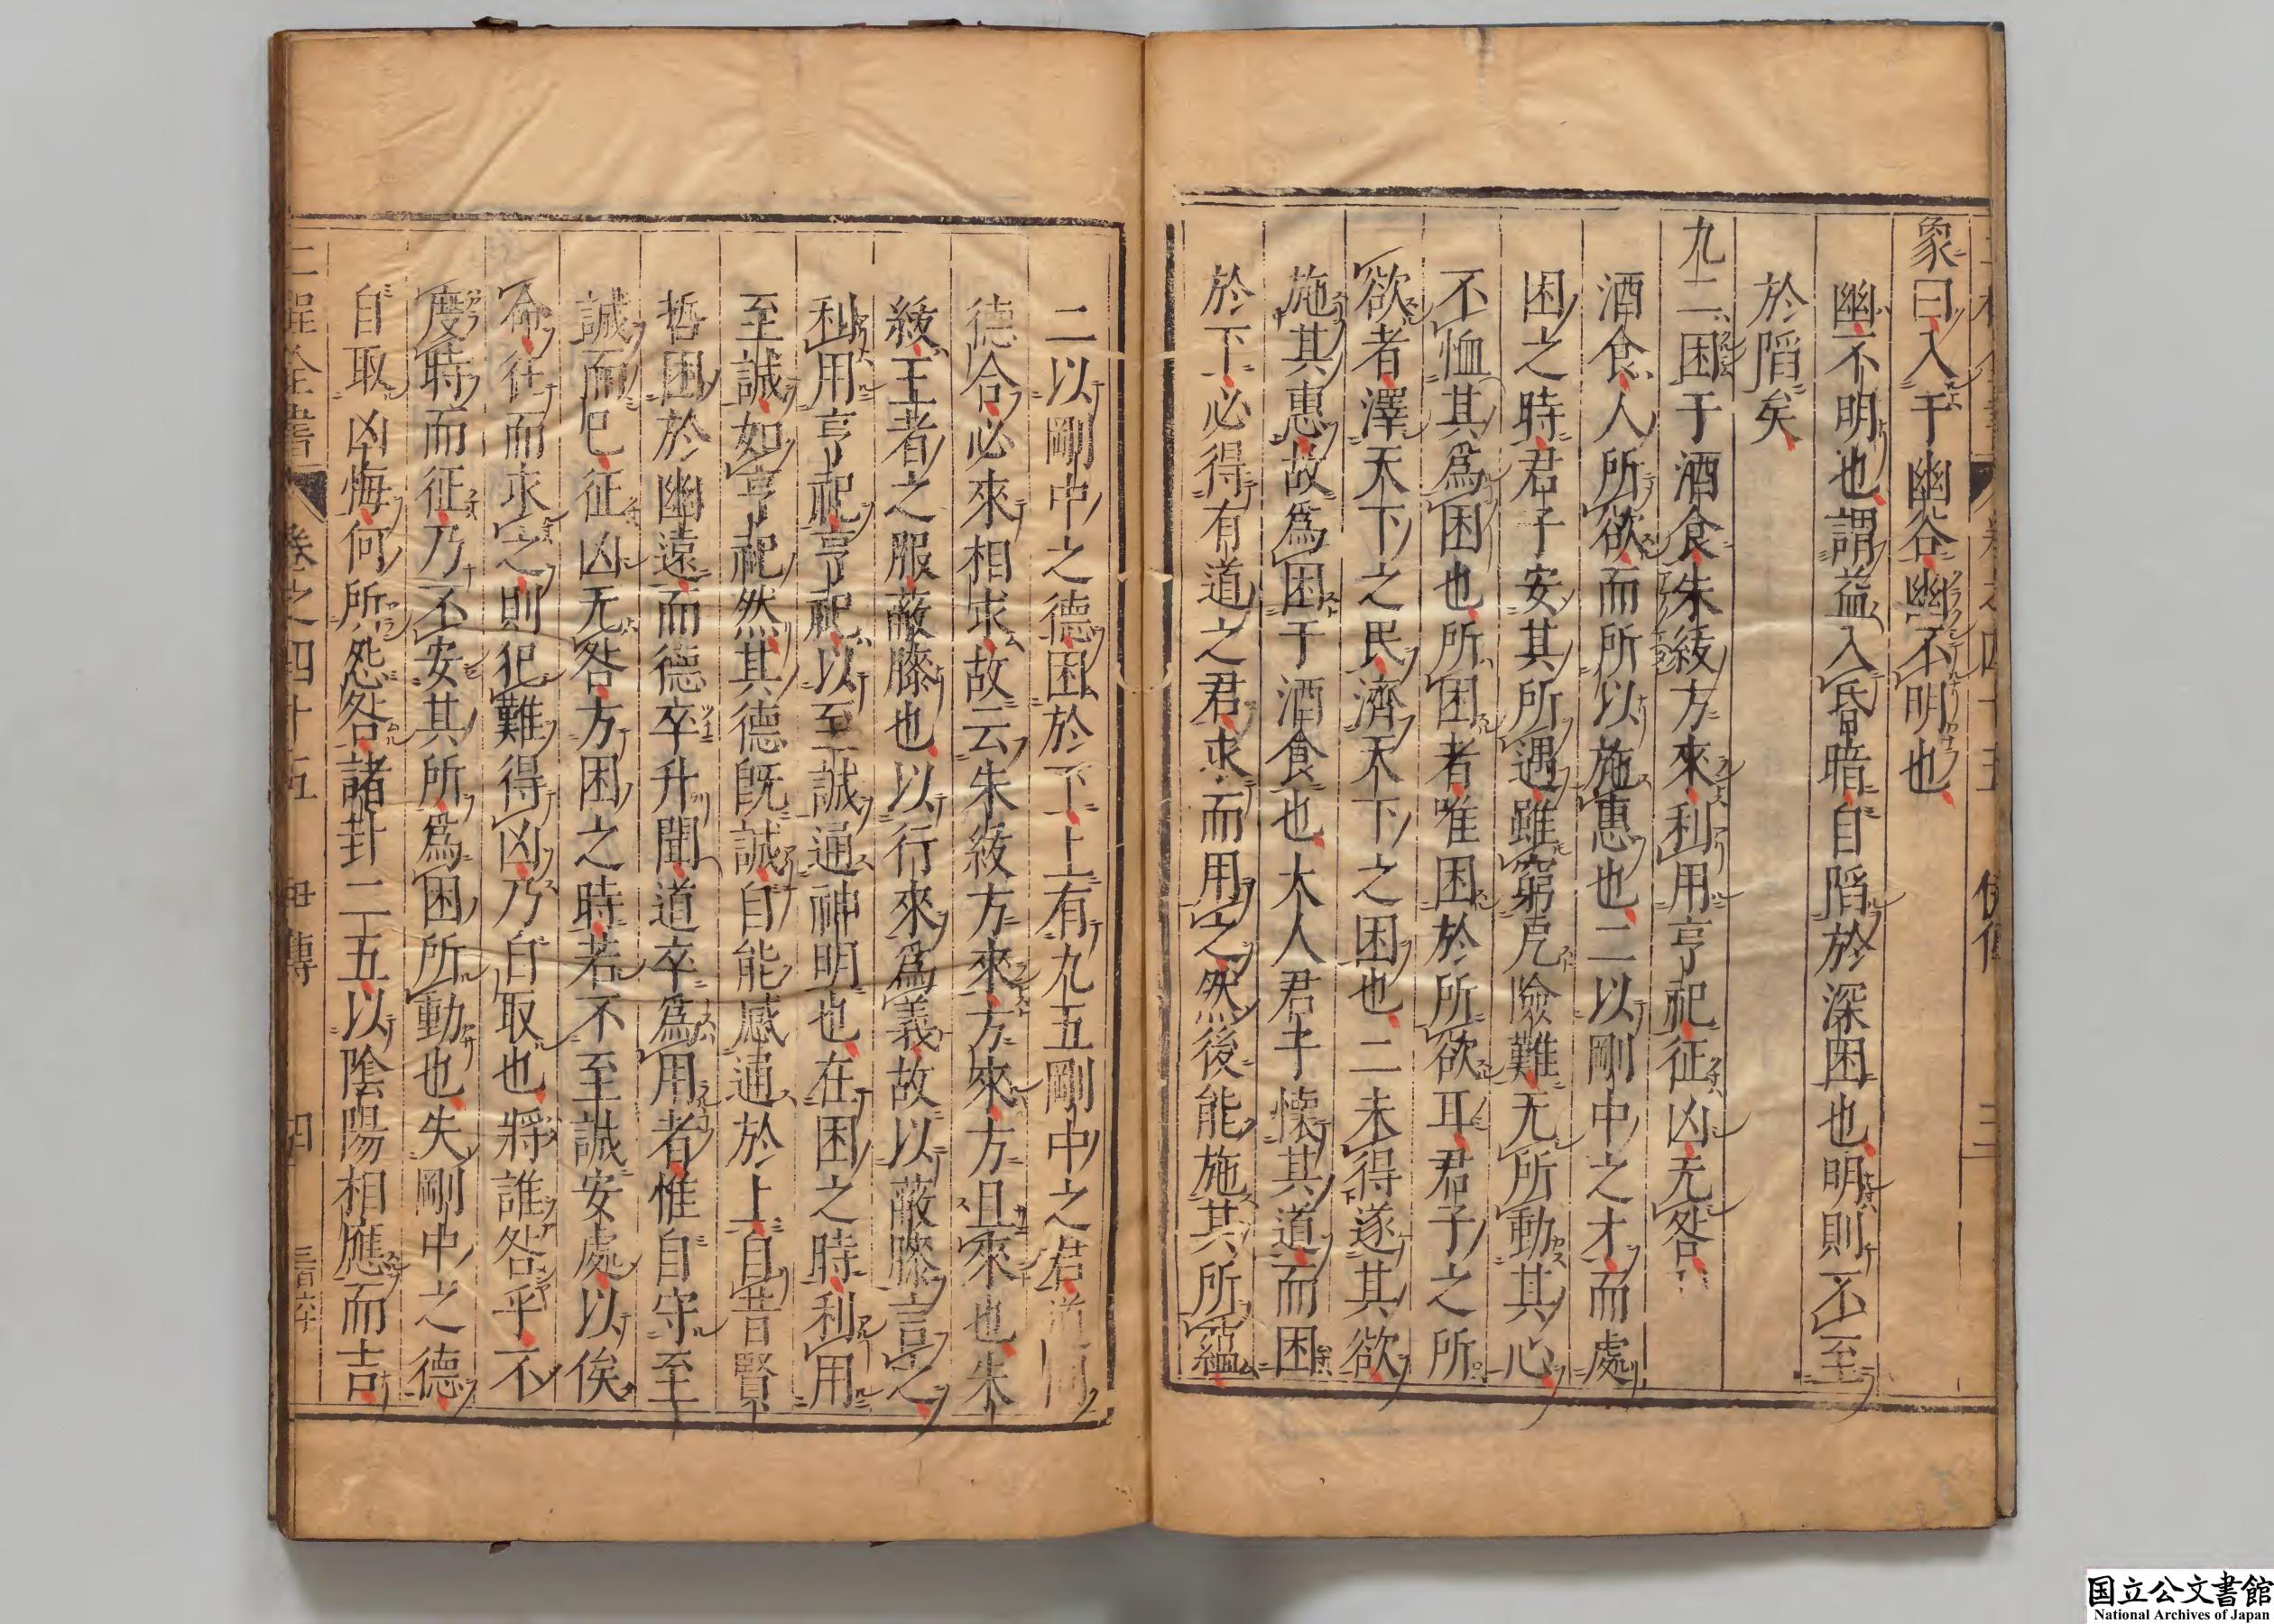 象曰入于幽谷幽不明也
幽不明也謂益入昏暗自陷於深困也明則不至
於陷矣
九二困于酒食朱紱方來利用亨祀征凶无咎
酒食人所欲而所以施惠也二以剛中之才而處
困之時君子安其所遇雖窮戹險難无所動其心
不恤其為困也所困者唯困於所欲耳君子之所
欲者澤天下之民濟天下之困也二未得遂其欲
施其惠故為困于酒食也大人君子懷其道而困
於下必得有道之君求而用之然後能施其所蘊
二以剛中之德困於下上有九五剛中之君道同
德合必來相求故云朱紱方來方來方且來也朱
紱王者之服蔽膝也以行來為義故以蔽膝言之
利用亨祀亨祀以至誠通神明也在困之時利用
至誠如亨祀然其德既誠自能感通於上自昔賢
哲困於幽遠而德卒升聞道卒為用者惟自守至
誠而已征凶无咎方困之時若不至誠安處以俟
命往而求之則犯難得凶乃自取也將誰咎乎不
度時而征乃不安其所為困所動也失剛中之德
自取凶悔何所怨咎諸卦二五以陰陽相應而吉
二程全書 卷之四十五 四
国立公文書館
National Archives of Japan